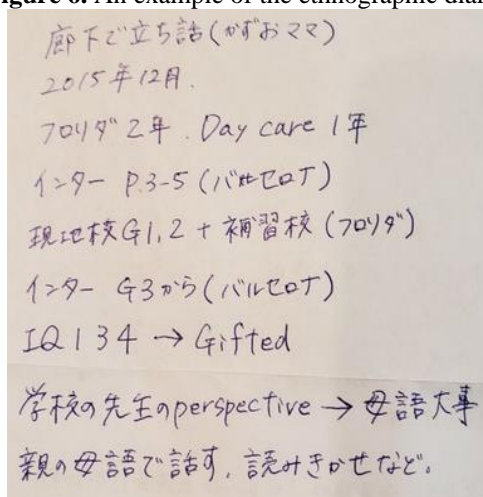 Figure 6. An example of the ethnographic diar
廊下で立ち話(かずおママ)
2015年12月.
フロリダ2年. Day care 1年
インター P.3-5 (バルセロナ)
現地校G1,2 + 補習校 (フロリダ)
インター G3から(バルセロナ)
IQ134 → Gifted
学校の先生のperspective → 母語大事
親の母語で話す, 読みきかせなど。